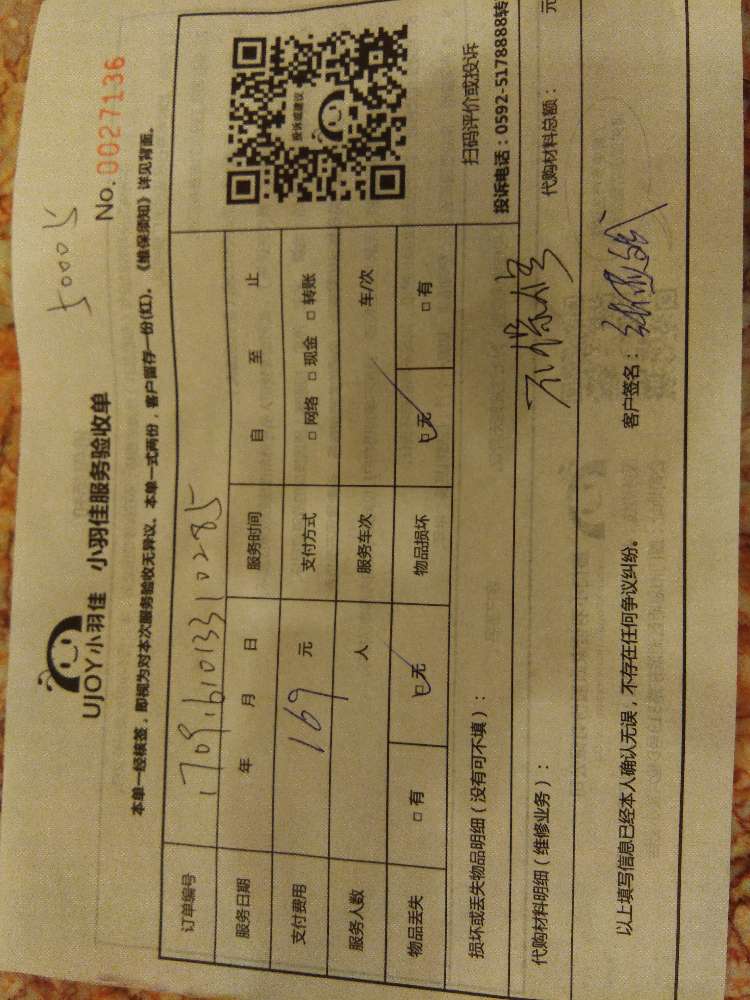 50005
UJOY小羽佳 小羽佳服务验收单
No. 0027136
本单一经核签，即视为对本次服务验收无异议。本单一式两份，客户留存一份(红)。《维保须知》详见背面。
订单编号 170916101331 0285
服务日期 年 月 日 服务时间 自 至 止
支付费用 169 元 支付方式 □ 网络 □ 现金 □ 转账
服务人数 人 服务车次 车/次
物品丢失 □ 有 □ 无 物品损坏 □ 无 □ 有
投诉或建议
扫码评价或投诉
投诉电话：0592-5178888转
损坏或丢失物品明细（没有可不填）：
代购材料明细（维修业务）： 代购材料总额： 元
以上填写信息已经本人确认无误，不存在任何争议纠纷。 客户签名：